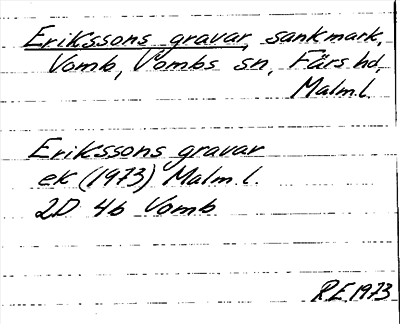 Erikssons gravar, sankmark,
Vomb, Vombs sn, Färs hd,
Malm.l.
Erikssons gravar
ek (1973) Malm.l.
2D 4b Vomb
RE 1973